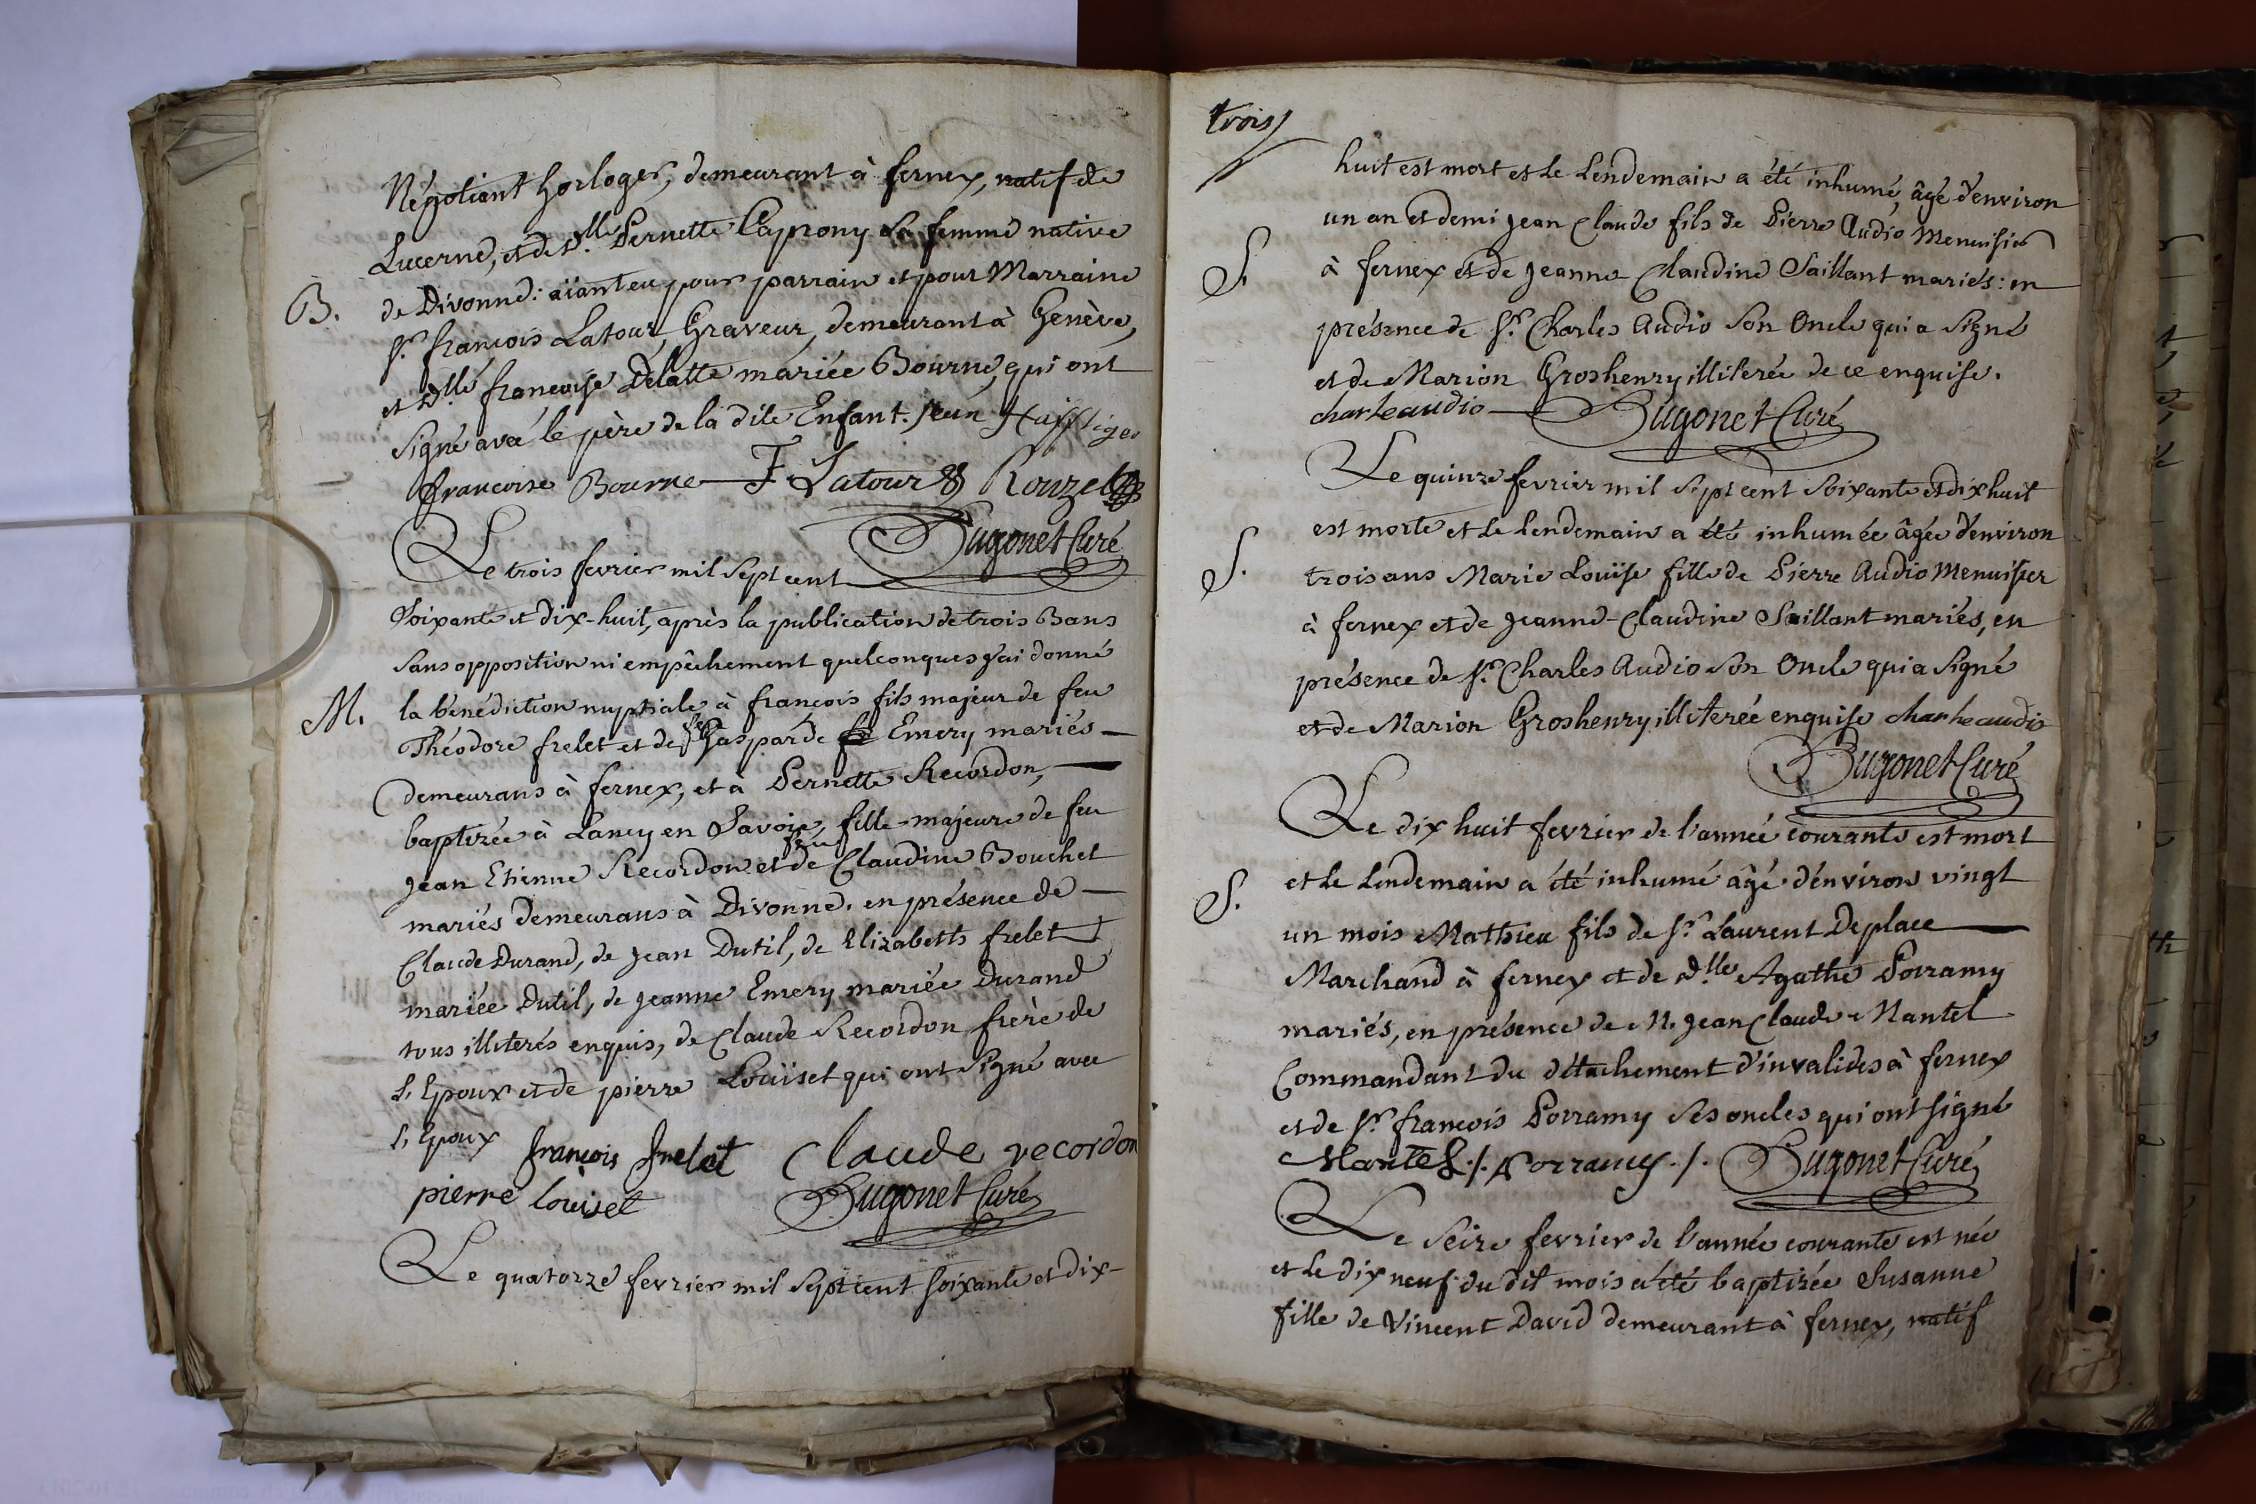 Négotiant horloger, demeurant à fernex, natif de
Lucerne, et de D.lle Pernette Caprony sa femme native
B. de Divonne: aïant eu pour parrain et pour Marraine
S.r françois Latour, Graveur, demeurant à Genève,
et D.lle françoise Délatte mariée Bourne, qui ont
signé avec le père de la dite Enfant. Jean
françoise Bourne F. Latour Rouzet
Hugonet Curé
Le trois fevrier mil sept cent
soixante et dix-huit, après la publication de trois Bans
sans opposition ni empêchement quelconques j'ai donné
M. la bénédiction nuptiale à françois fils majeur de feu
Théodore frelet et de feu Gasparde Emery mariés
demeurans à fernex, et à Pernette Recordon,
baptizée à Lancy en Savoie, fille majeure de feu
Jean Etienne Recordon et de feu Claudine Bouchet
mariés demeurans à Divonne. en présence de
Claude Durand, de Jean Dutil, de Elizabeth frelet
mariée Dutil, de Jeanne Emery mariée Durand
tous illiterés enquis, de Claude Recordon frère de
l'Epoux et de pierre Loüiset qui ont signé avec
l'Epoux françois frelet Claude recordon
pierre loüiset Hugonet Curé
Le quatorze fevrier mil sept cent soixante et dix-
trois
huit est mort et le Lendemain a été inhumé, âgé d'environ
un an et demi Jean Claude fils de Pierre Audio Menuisier
S. à fernex et de Jeanne Claudine Saillant mariés: en
présence de S.r Charles Audio son Oncle qui a signé
et de Marion Groshenry illiterée de ce enquise.
charle audio Hugonet Curé
Le quinze fevrier mil sept cent soixante et dix huit
est morte et le lendemain a été inhumée âgée d'environ
S. trois ans Marie Loüise fille de Pierre Audio Menuisier
à fernex et de Jeanne-Claudine Saillant mariés, en
présence de S.r Charles Audio son Oncle qui a signé
et de Marion Groshenry illiterée enquise charle audio
Hugonet Curé
Le dix huit fevrier de l'année courante est mort
S. et le lendemain a été inhumé âgé d'environ vingt
un mois Mathieu fils de S.r Laurent Deplace
Marchand à fernex et de D.lle Agathe Porramy
mariés, en présence de M. Jean Claude Mantel
Commandant du détachement d'invalides à fernex
et de S.r françois Porramy ses oncles qui ont signé
Mantel ./. Porramy ./. Hugonet Curé
Le seize fevrier de l'année courante est née
et le dix neuf du dit mois a été baptizée Susanne
fille de Vincent David demeurant à fernex, natif